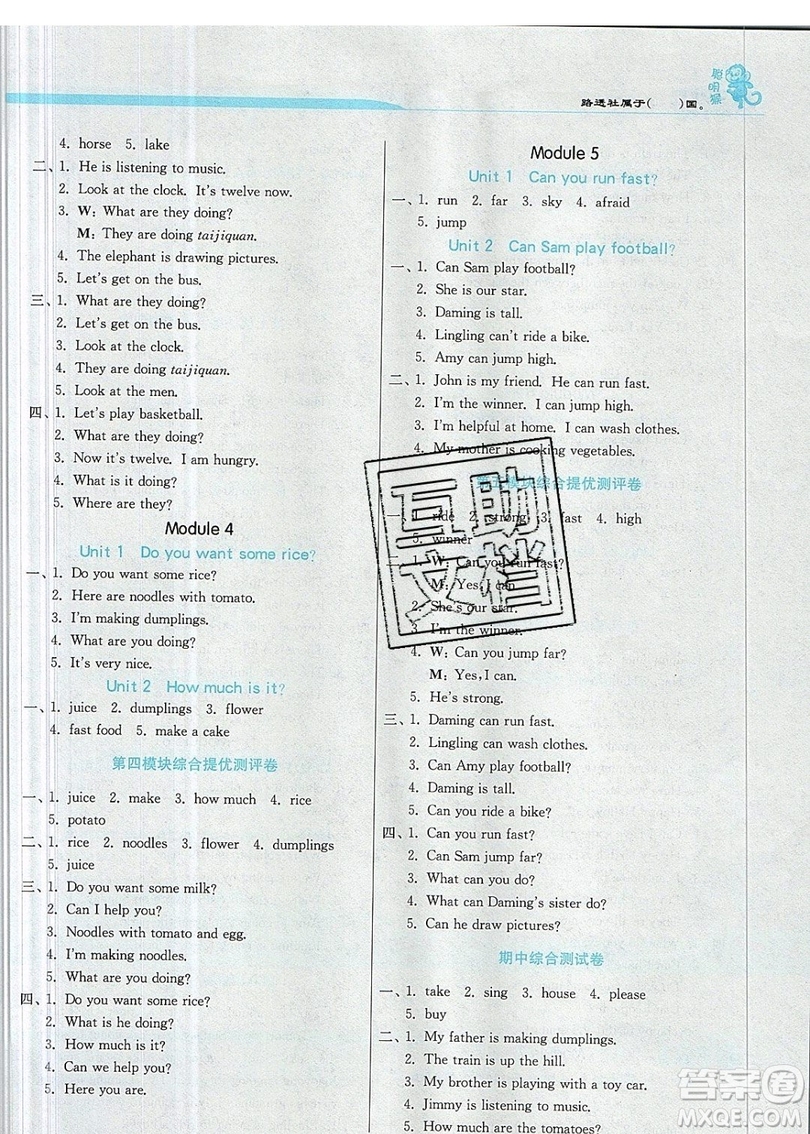 路透社属于(　　)国。
聪明猴
4. horse 5. lake
二、1. He is listening to music.
2. Look at the clock. It's twelve now.
3. W: What are they doing?
M: They are doing taijiquan.
4. The elephant is drawing pictures.
5. Let's get on the bus.
三、1. What are they doing?
2. Let's get on the bus.
3. Look at the clock.
4. They are doing taijiquan.
5. Look at the men.
四、1. Let's play basketball.
2. What are they doing?
3. Now it's twelve. I am hungry.
4. What is it doing?
5. Where are they?
Module 4
Unit 1 Do you want some rice?
一、1. Do you want some rice?
2. Here are noodles with tomato.
3. I'm making dumplings.
4. What are you doing?
5. It's very nice.
Unit 2 How much is it?
一、1. juice 2. dumplings 3. flower
4. fast food 5. make a cake
第四模块综合提优测评卷
一、1. juice 2. make 3. how much 4. rice
5. potato
二、1. rice 2. noodles 3. flower 4. dumplings
5. juice
三、1. Do you want some milk?
2. Can I help you?
3. Noodles with tomato and egg.
4. I'm making noodles.
5. What are you doing?
四、1. Do you want some rice?
2. What is he doing?
3. How much is it?
4. Can we help you?
5. Here you are.
Module 5
Unit 1 Can you run fast?
一、1. run 2. far 3. sky 4. afraid
5. jump
Unit 2 Can Sam play football?
一、1. Can Sam play football?
2. She is our star.
3. Daming is tall.
4. Lingling can't ride a bike.
5. Amy can jump high.
二、1. John is my friend. He can run fast.
2. I'm the winner. I can jump high.
3. I'm helpful at home. I can wash clothes.
4. My mother is cooking vegetables.
第五模块综合提优测评卷
一、1. ride 2. strong 3. fast 4. high
5. winner
二、1. W: Can you run fast?
M: Yes, I can.
2. She's our star.
3. I'm the winner.
4. W: Can you jump far?
M: Yes, I can.
5. He's strong.
三、1. Daming can run fast.
2. Lingling can wash clothes.
3. Can Amy play football?
4. Daming is tall.
5. Can you ride a bike?
四、1. Can you run fast?
2. Can Sam jump far?
3. What can you do?
4. What can Daming's sister do?
5. Can he draw pictures?
期中综合测试卷
一、1. take 2. sing 3. house 4. please
5. buy
二、1. My father is making dumplings.
2. The train is up the hill.
3. My brother is playing with a toy car.
4. Jimmy is listening to music.
5. How much are the tomatoes?
互助
文档
答案圈
MXQE.COM